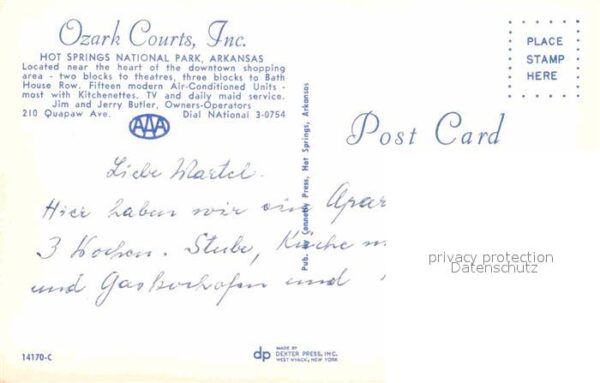 Ozark Courts, Inc.
HOT SPRINGS NATIONAL PARK, ARKANSAS
Located near the heart of the downtown shopping
area - two blocks to theatres, three blocks to Bath
House Row. Fifteen modern Air-Conditioned Units -
most with Kitchenettes. TV and daily maid service.
Jim and Jerry Butler, Owners-Operators
210 Quapaw Ave. Dial NAtional 3-0754
AAA
Liebe
Hier haben wir ein Apar
3 Wochen. Stube, Küche
und Gaskochofen und
14170-C
Pub. by Connelly Press, Hot Springs, Arkansas
dp MADE BY
DEXTER PRESS, INC.
WEST NYACK, NEW YORK
PLACE
STAMP
HERE
Post Card
privacy protection
Datenschutz